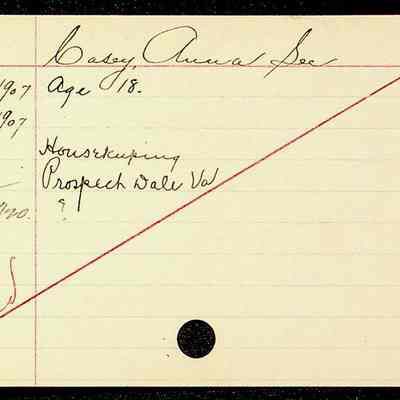 Casey, Anna Lee
1907 Age 18.
1907
Housekeeping
Prospect Dale Va
?